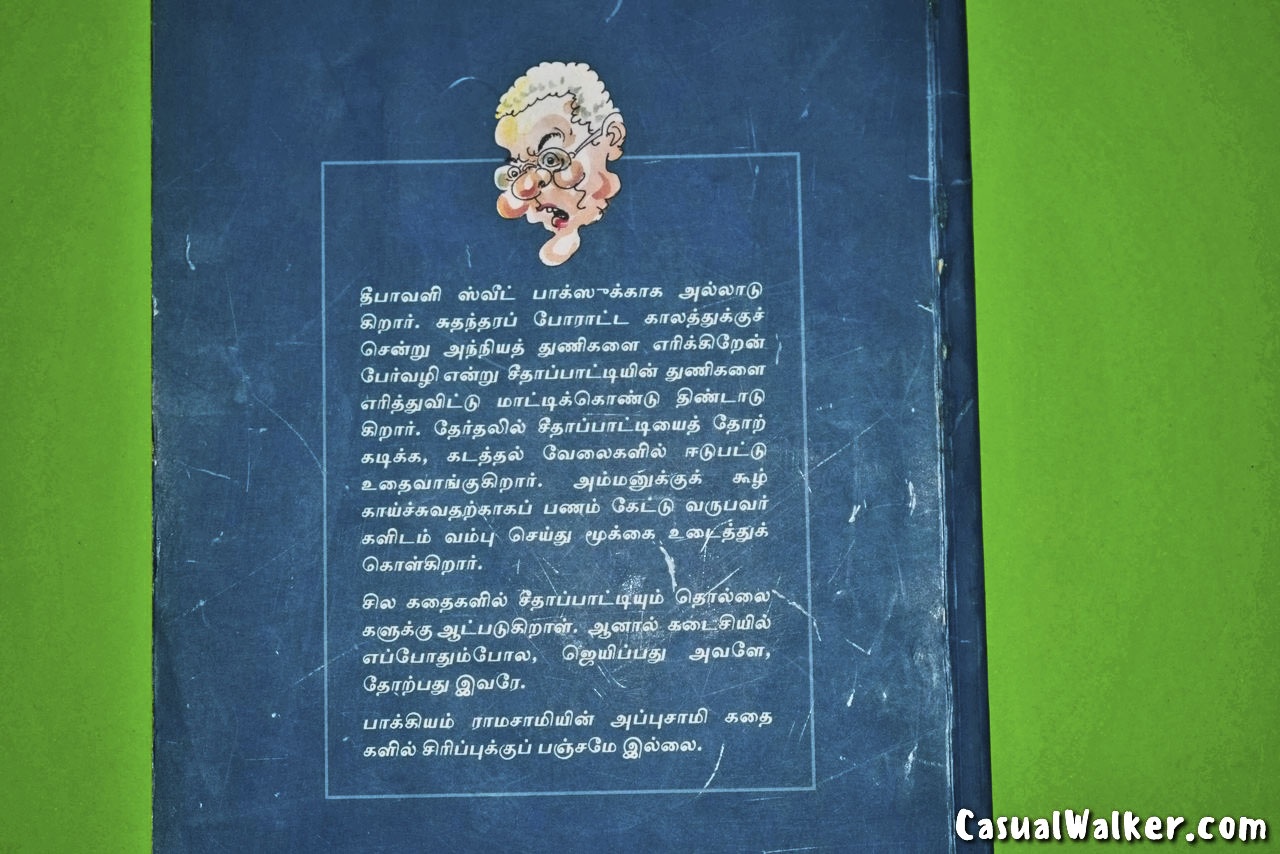 தீபாவளி ஸ்வீட் பாக்ஸுக்காக அல்லாடு
கிறார். சுதந்தரப் போராட்ட காலத்துக்குச்
சென்று அந்நியத் துணிகளை எரிக்கிறேன்
பேர்வழி என்று சீதாப்பாட்டியின் துணிகளை
எரித்துவிட்டு மாட்டிக்கொண்டு திண்டாடு
கிறார். தேர்தலில் சீதாப்பாட்டியைத் தோற்
கடிக்க, கடத்தல் வேலைகளில் ஈடுபட்டு
உதைவாங்குகிறார். அம்மனுக்குக் கூழ்
காய்ச்சுவதற்காகப் பணம் கேட்டு வருபவர்
களிடம் வம்பு செய்து மூக்கை உடைத்துக்
கொள்கிறார்.
சில கதைகளில் சீதாப்பாட்டியும் தொல்லை
களுக்கு ஆட்படுகிறாள். ஆனால் கடைசியில்
எப்போதும்போல, ஜெயிப்பது அவளே,
தோற்பது இவரே.
பாக்கியம் ராமசாமியின் அப்புசாமி கதை
களில் சிரிப்புக்குப் பஞ்சமே இல்லை.
CasualWalker.com